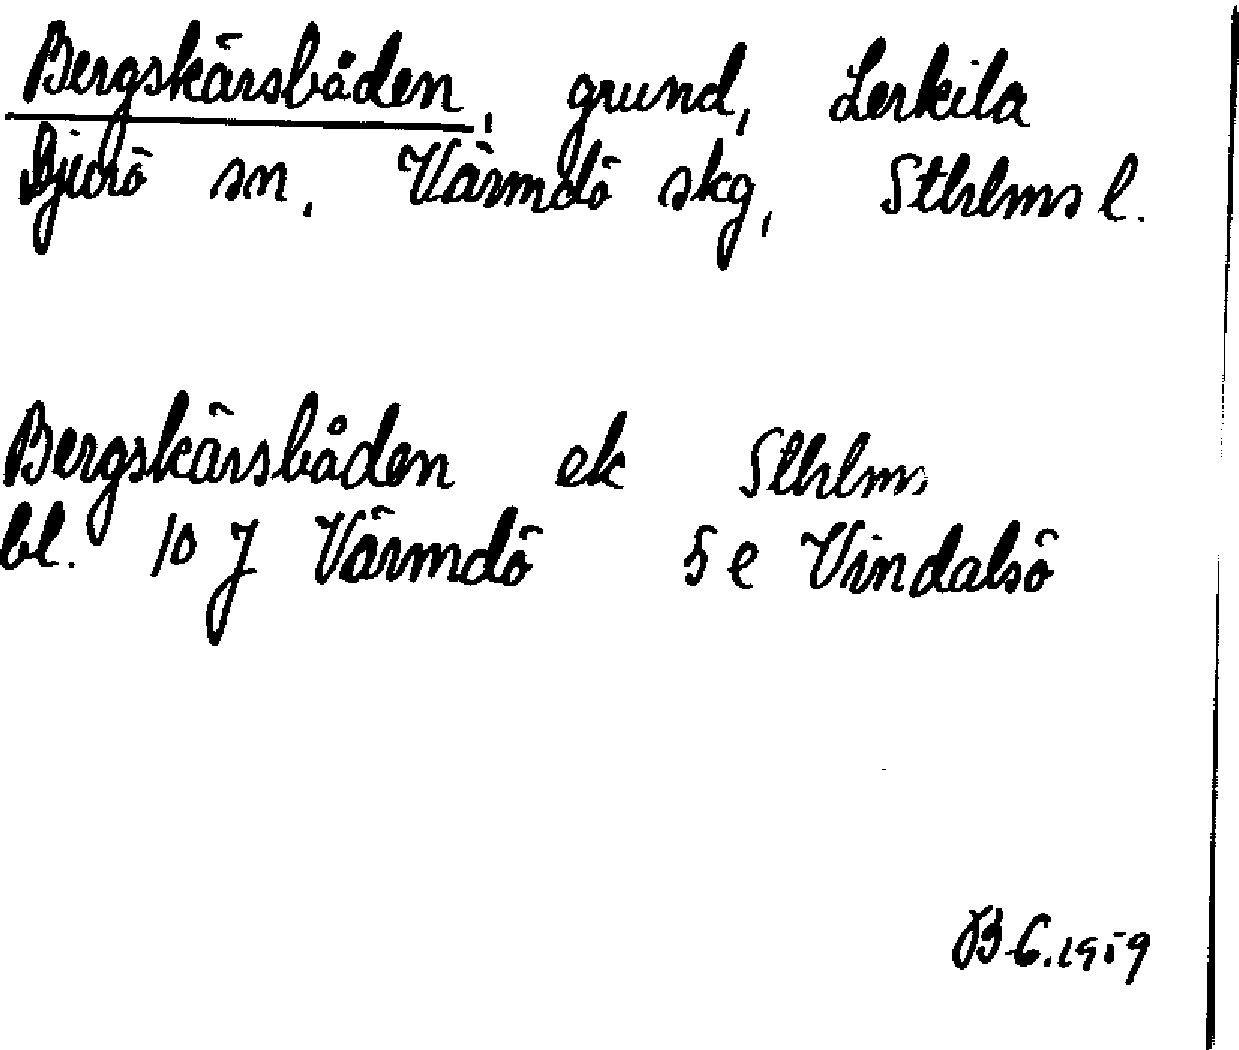 Bergskärsbåden, grund, Lerkila
Djurö sn, Värmdö skg, Sthlms l.
Bergskärsbåden ek Sthlms
bl. 10 J Värmdö 5 e Vindalsö
B G. 1959